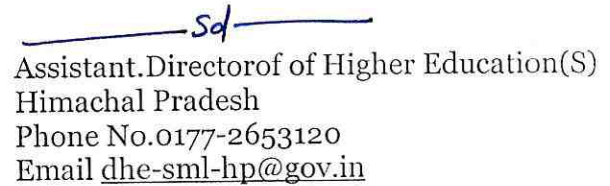 Sd
Assistant.Directorof of Higher Education(S)
Himachal Pradesh
Phone No.0177-2653120
Email dhe-sml-hp@gov.in